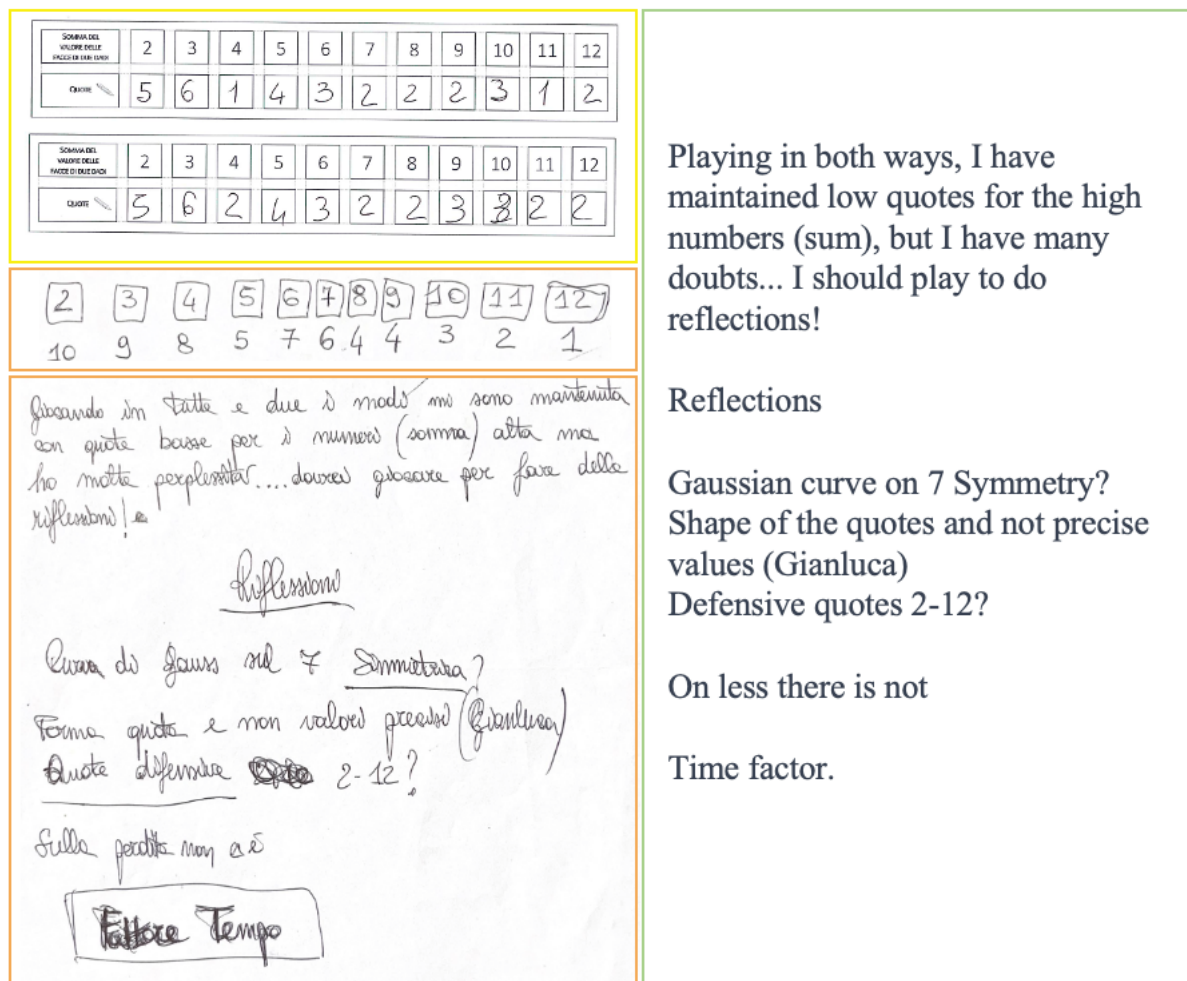 SOMMA DEL
VALORE DELLE
FACCE DI DUE DADI
2 3 4 5 6 7 8 9 10 11 12
QUOTE
5 6 1 4 3 2 2 2 3 1 2
SOMMA DEL
VALORE DELLE
FACCE DI DUE DADI
2 3 4 5 6 7 8 9 10 11 12
QUOTE
5 6 2 4 3 2 2 3 3 2 2
2 3 4 5 6 7 8 9 10 11 12
10 9 8 5 7 6 4 4 3 2 1
Giocando in tutte e due i modi mi sono mantenuta
con quote basse per i numeri (somma) alta ma
ho molte perplessità.... dovrei giocare per fare delle
riflessioni!
Riflessioni
Curva di Gauss sul 7 Simmetria?
Forma quote e non valori precisi (Gianluca)
Quote difensive 2-12?
Sulla perdita non c'è
Fattore Tempo
Playing in both ways, I have
maintained low quotes for the high
numbers (sum), but I have many
doubts... I should play to do
reflections!
Reflections
Gaussian curve on 7 Symmetry?
Shape of the quotes and not precise
values (Gianluca)
Defensive quotes 2-12?
On less there is not
Time factor.